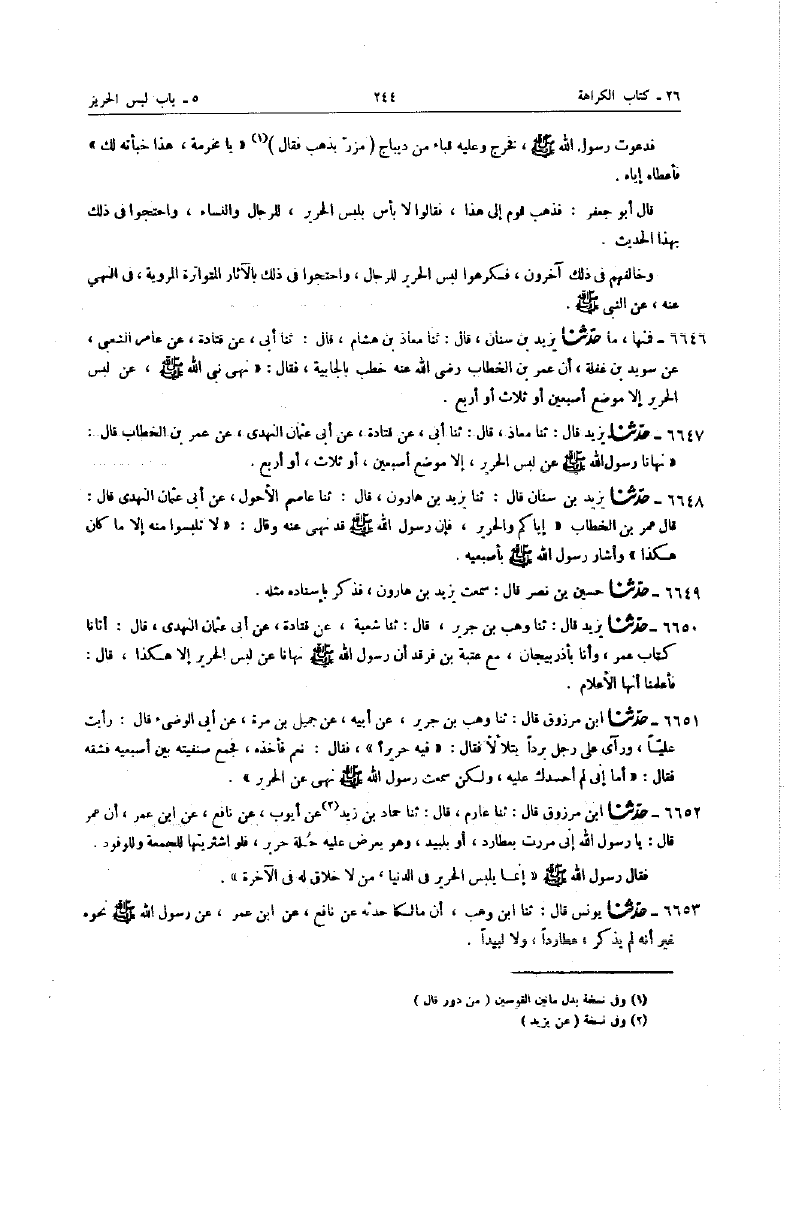 ٢٦ ـ كتاب الكراهة ٢٤٤ ٥ ـ باب لبس الحرير
فدعوت رسول الله ﷺ ، فخرج وعليه قباء من ديباج ( مزرّ بذهب فقال )(١) « يا مخرمة ، هذا خبأته لك »
فأعطاه إياه .
قال أبو جعفر : فذهب قوم إلى هذا ، فقالوا لا بأس بلبس الحرير ، للرجال والنساء ، واحتجوا فى ذلك
بهذا الحديث .
وخالفهم فى ذلك آخرون ، فكرهوا لبس الحرير للرجال ، واحتجوا فى ذلك بالآثار المتواترة المروية ، فى النهي
عنه ، عن النبي ﷺ .
٦٦٤٦ ـ فمنها ، ما حدّثنا يزيد بن سنان ، قال : ثنا معاذ بن هشام ، قال : ثنا أبى ، عن قتادة ، عن عامر الشعبي ،
عن سويد بن غفلة ، أن عمر بن الخطاب رضى الله عنه خطب بالجابية ، فقال : « نهى نبي الله ﷺ ، عن لبس
الحرير إلا موضع أصبعين أو ثلاث أو أربع .
٦٦٤٧ ـ حدّثنا يزيد قال : ثنا معاذ ، قال : ثنا أبى ، عن قتادة ، عن أبى عثمان النهدى ، عن عمر بن الخطاب قال :
« نهانا رسول الله ﷺ عن لبس الحرير ، إلا موضع أصبعين ، أو ثلاث ، أو أربع .
٦٦٤٨ ـ حدّثنا يزيد بن سنان قال : ثنا يزيد بن هارون ، قال : ثنا عاصم الأحول ، عن أبى عثمان النهدى قال :
قال عمر بن الخطاب « إياكم والحرير ، فإن رسول الله ﷺ قد نهى عنه وقال : « لا تلبسوا منه إلا ما كان
هكذا » وأشار رسول الله ﷺ بأصبعيه .
٦٦٤٩ ـ حدّثنا حسين بن نصر قال : سمعت يزيد بن هارون ، فذكر بإسناده مثله .
٦٦٥٠ ـ حدّثنا يزيد قال : ثنا وهب بن جرير ، قال : ثنا شعبة ، عن قتادة ، عن أبى عثمان النهدى ، قال : أتانا
كتاب عمر ، وأنا بأذربيجان ، مع عتبة بن فرقد أن رسول الله ﷺ نهانا عن لبس الحرير إلا هكذا ، قال :
فأعلمنا أنها الأعلام .
٦٦٥١ ـ حدّثنا ابن مرزوق قال : ثنا وهب بن جرير ، عن أبيه ، عن جميل بن مرة ، عن أبى الوضىء قال : رأيت
عليّاً ، ورآى على رجل برداً يتلألأ فقال : « فيه حرير؟ » ، فقال : نعم فأخذه ، فجمع صنفيته بين أصبعيه فشقه
فقال : « أما إنى لم أحسدك عليه ، ولكن سمعت رسول الله ﷺ نهى عن الحرير » .
٦٦٥٢ ـ حدّثنا ابن مرزوق قال : ثنا عارم ، قال : ثنا حماد بن زيد(٢) عن أيوب ، عن نافع ، عن ابن عمر ، أن عمر
قال : يا رسول الله إنى مررت بعطارد ، أو بلبيد ، وهو يعرض عليه حُلة حرير ، فلو اشتريتها للجمعة وللوفود .
فقال رسول الله ﷺ « إنما يلبس الحرير فى الدنيا ، من لا خلاق له فى الآخرة » .
٦٦٥٣ ـ حدّثنا يونس قال : ثنا ابن وهب ، أن مالكا حدثه عن نافع ، عن ابن عمر ، عن رسول الله ﷺ نحوه
غير أنه لم يذكر ، عطارداً ، ولا لبيداً .
(١) وفى نسخة بدل مابين القوسين ( من دور قال )
(٢) وفى نسخة ( عن يزيد )